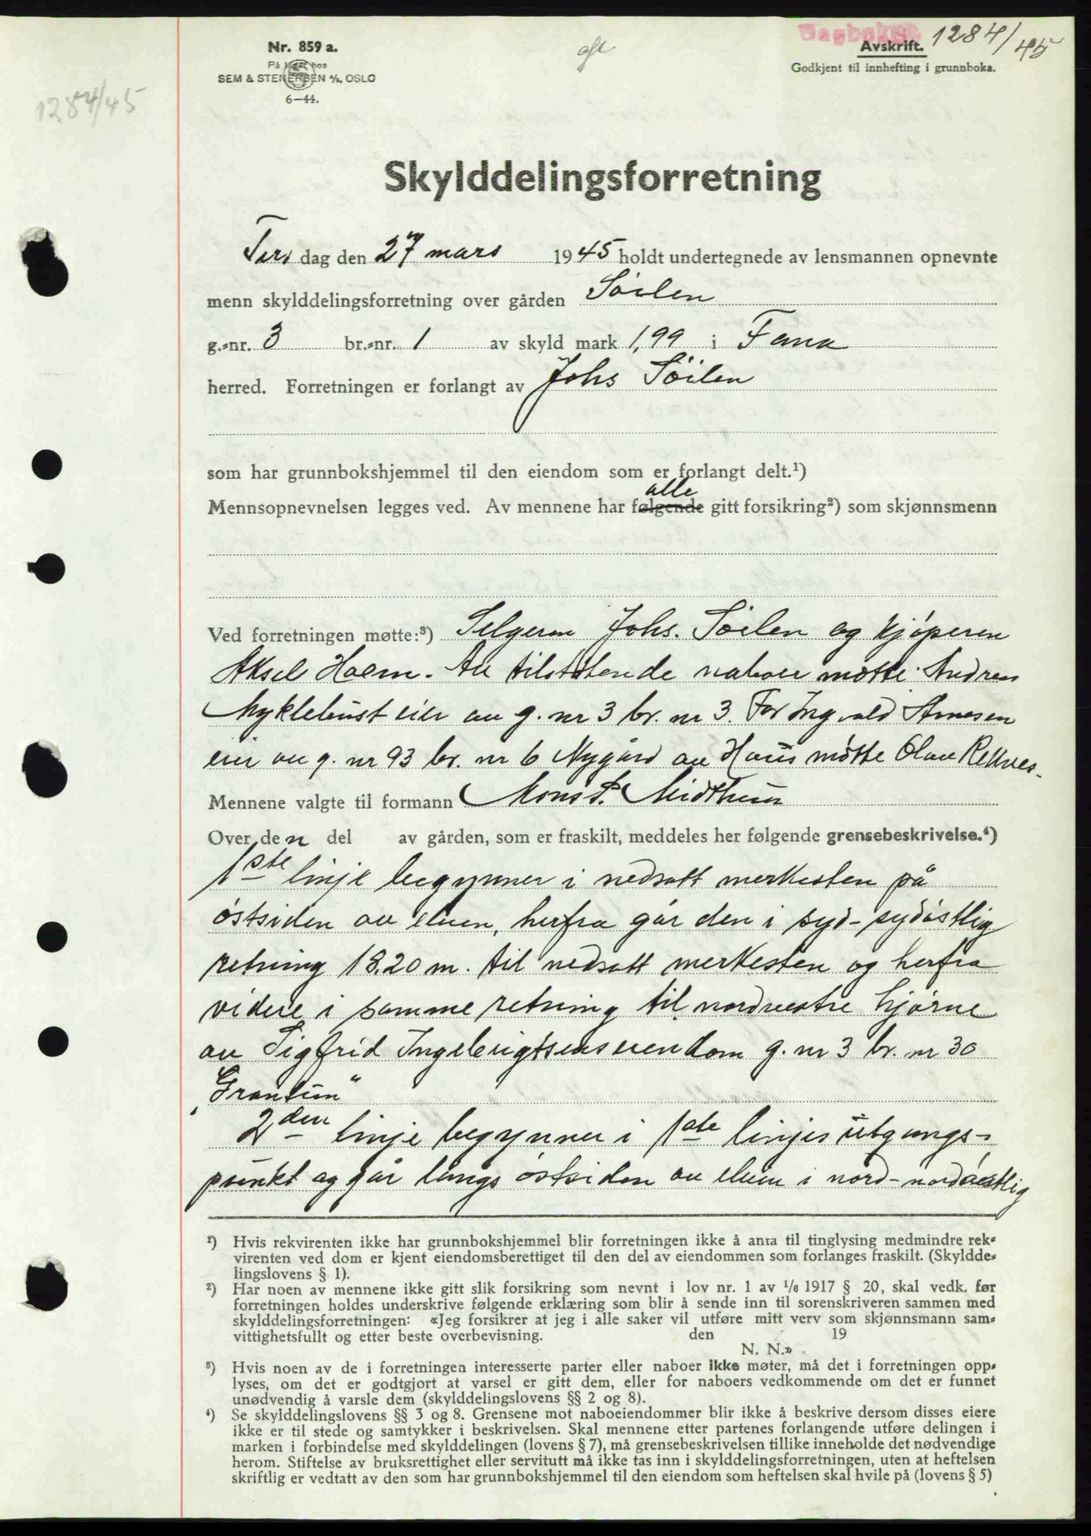 Nr. 859 a.
På lager hos
SEM & STENERSEN A/S, OSLO
6-44.
Dagboknr.
1284/45
Avskrift.
Godkjent til innhefting i grunnboka.
1284/45
Skylddelingsforretning
Tirs dag den 27 mars 1945 holdt undertegnede av lensmannen opnevnte
menn skylddelingsforretning over gården Söilen
g.-nr. 3 br.-nr. 1 av skyld mark 1,99 i Fana
herred. Forretningen er forlangt av Johs Söilen
som har grunnbokshjemmel til den eiendom som er forlangt delt.¹)
alle
Mennsopnevnelsen legges ved. Av mennene har følgende gitt forsikring²) som skjønnsmenn
Ved forretningen møtte:³) Selgeren Johs. Söilen og kjöperen
Aksel Holm. Av tilstötende naboer mötte Andreas
Myklebust eier av g. nr 3 br. nr 3. For Ingvald Arnesen
eier av g. nr 93 br. nr 6 Nygård av Haus mötte Olav Rekves-
Mennene valgte til formann Mons P. Midthun
Over den del av gården, som er fraskilt, meddeles her følgende grensebeskrivelse.⁴)
1ste linje begynner i nedsatt merkesten på
östsiden av elven, herfra går den i syd-sydöstlig
retning 18.20 m. til nedsatt merkesten og herfra
videre i samme retning til nordvestre hjörne
av Sigfrid Ingebrigtsens eiendom g. nr 3 br. nr 30
"Grantun"
2den linje begynner i 1ste linjes utgangs-
punkt og går langs östsiden av elven i nord-nordöstlig
¹) Hvis rekvirenten ikke har grunnbokshjemmel blir forretningen ikke å anta til tinglysing medmindre rek-
virenten ved dom er kjent eiendomsberettiget til den del av eiendommen som forlanges fraskilt. (Skyldde-
lingslovens § 1).
²) Har noen av mennene ikke gitt slik forsikring som nevnt i lov nr. 1 av 1/6 1917 § 20, skal vedk. før
forretningen holdes underskrive følgende erklæring som blir å sende inn til sorenskriveren sammen med
skylddelingsforretningen: «Jeg forsikrer at jeg i alle saker vil utføre mitt verv som skjønnsmann sam-
vittighetsfullt og etter beste overbevisning. den 19
N. N.»
³) Hvis noen av de i forretningen interesserte parter eller naboer ikke møter, må det i forretningen opp-
lyses, om det er godtgjort at varsel er gitt dem, eller for naboers vedkommende om det er funnet
unødvendig å varsle dem (skylddelingslovens §§ 2 og 8).
⁴) Se skylddelingslovens §§ 3 og 8. Grensene mot naboeiendommer blir ikke å beskrive dersom disses eiere
ikke er til stede og samtykker i beskrivelsen. Skal mennene etter partenes forlangende utføre delingen i
marken i forbindelse med skylddelingen (lovens § 7), må grensebeskrivelsen tillike inneholde det nødvendige
herom. Stiftelse av bruksrettighet eller servitutt må ikke tas inn i skylddelingsforretningen, uten at heftelsen
skriftlig er vedtatt av den som har grunnbokshjemmel til den eiendom som heftelsen skal hvile på (lovens § 5)